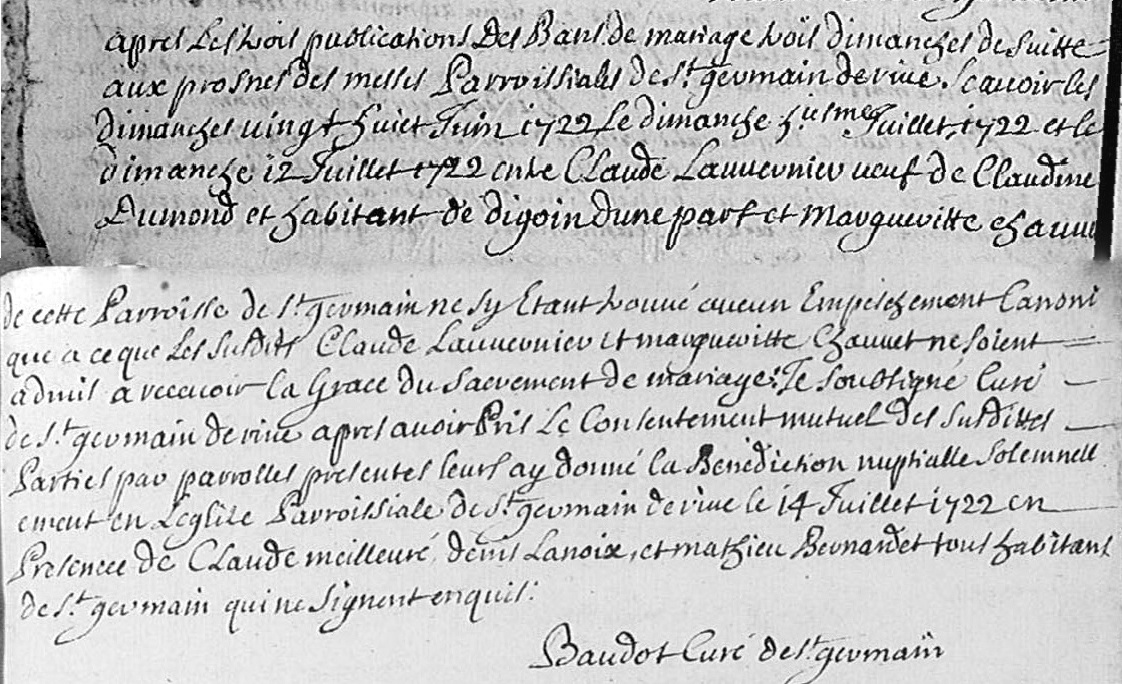 apres Les trois publications Des Bans de mariage trois dimanches de suitte
aux prosnes des messes Parroissiales de St germain de rive. scavoir les
dimanches vingt huict Juin 1722 Le dimanche Juillet 1722 et le
dimanche 12 Juillet 1722 entre Claude Lauvernier veuf de Claudine
Dumond et habitant de digoin dune part et margueritte chauv
de cette Parroisse de St germain ne sy Etant trouvé aucun Empeschement Canoni
que a ce que Les susdits Claude Lauvernier et margueritte Chauvet ne soient
admis a recevoir la Grace du Sacrement de mariage: Je soubsigné Curé
de St germain de rive apres avoir Pris Le Consentement mutuel des susdittes
Parties par parrolles presentes leurs ay donné la Benediction nuptialle solemnell
ement en Leglise Parroissiale de St germain de rive le 14 Juillet 1722 en
Presence de Claude meilleuré, denis Lanoix, et mathieu Bernardet tous habitans
de St germain qui ne signent enquis.
Baudot Curé de St germain